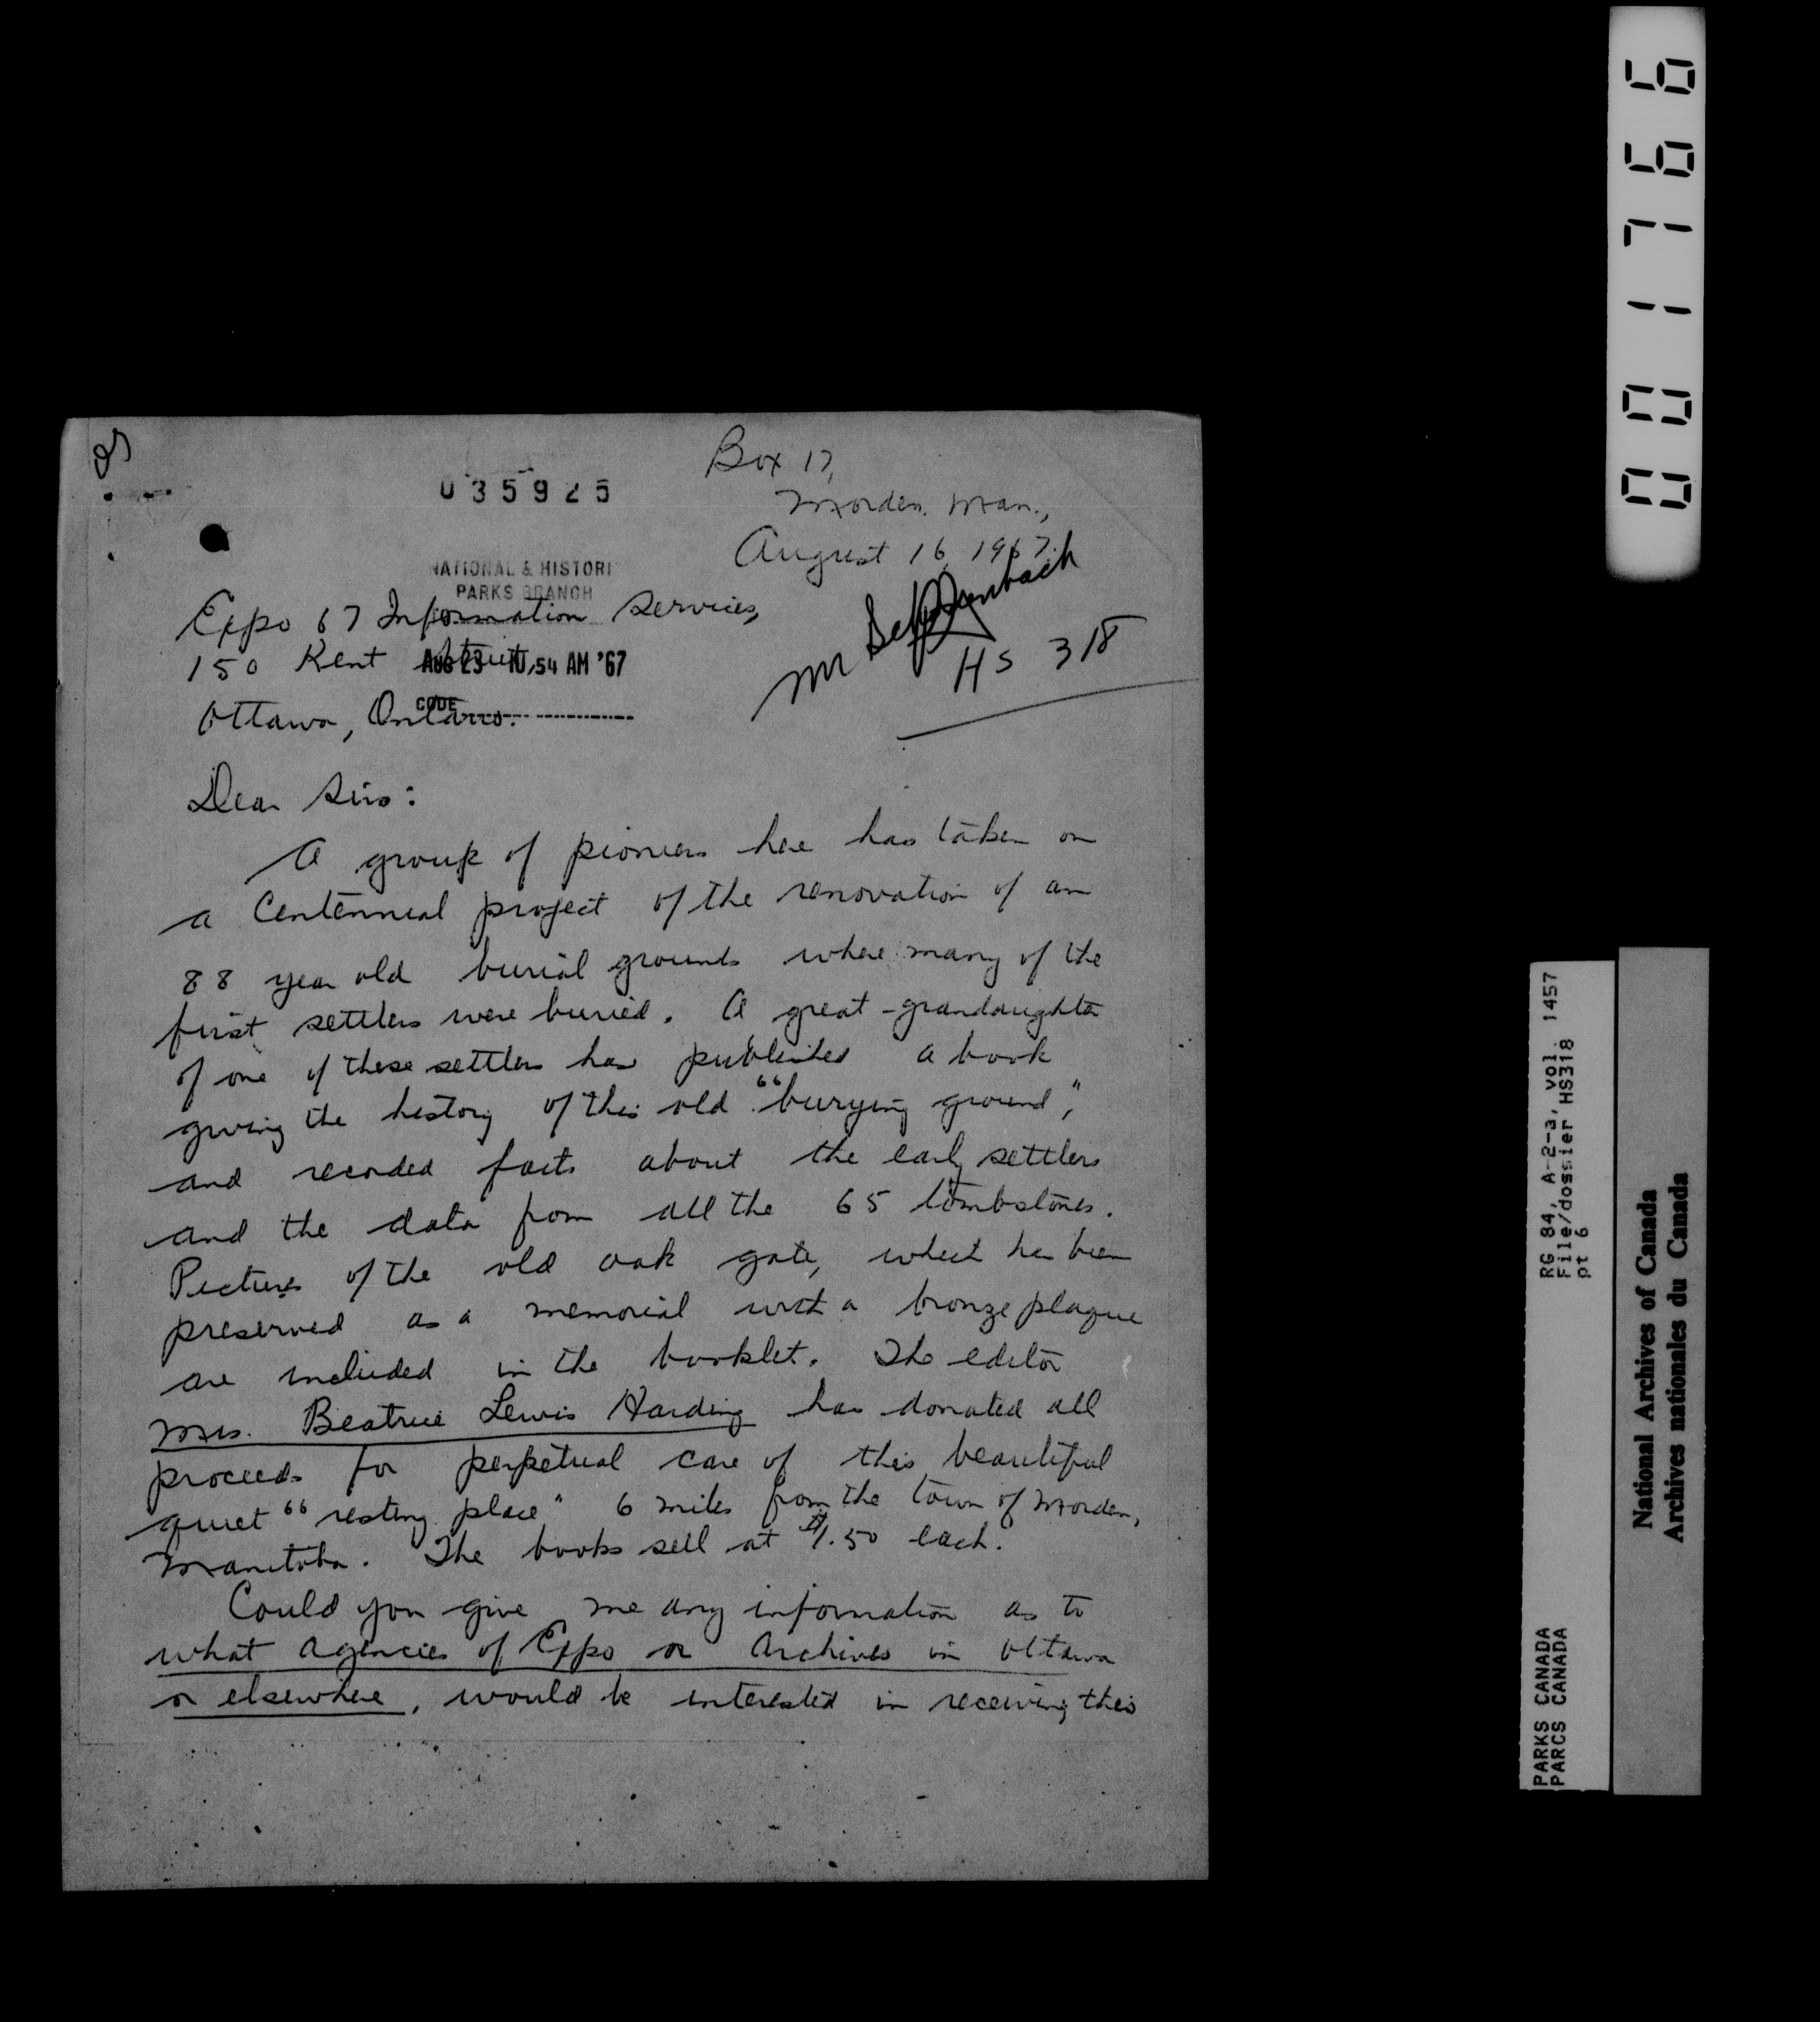 035925
Box 17,
Morden. Man.,
August 16, 1967.
NATIONAL & HISTORI
PARKS BRANCH
Expo 67 Information Services,
150 Kent Street,
AUG 23 10 54 AM '67
Ottawa, Ontario.
CODE
Mr
HS 318
Dear Sirs:
A group of pioneers here has taken on
a Centennial project of the renovation of an
88 year old burial grounds where many of the
first settlers were buried. A great-grandaughter
of one of these settlers has published a book
giving the history of this old "burying ground",
and recorded facts about the early settlers
and the data from all the 65 tombstones.
Pictures of the old oak gate, which has been
preserved as a memorial with a bronze plaque
are included in the booklet. The editor
Mrs. Beatrice Lewis Harding has donated all
proceeds for perpetual care of this beautiful
quiet "resting place" 6 miles from the town of Morden,
Manitoba. The books sell at $1.50 each.
Could you give me any information as to
what agencies of Expo or Archives in Ottawa
or elsewhere, would be interested in receiving this
001766
RG 84, A-2-a, vol. 1457
File/dossier HS318
pt 6
PARKS CANADA
PARCS CANADA
National Archives of Canada
Archives nationales du Canada